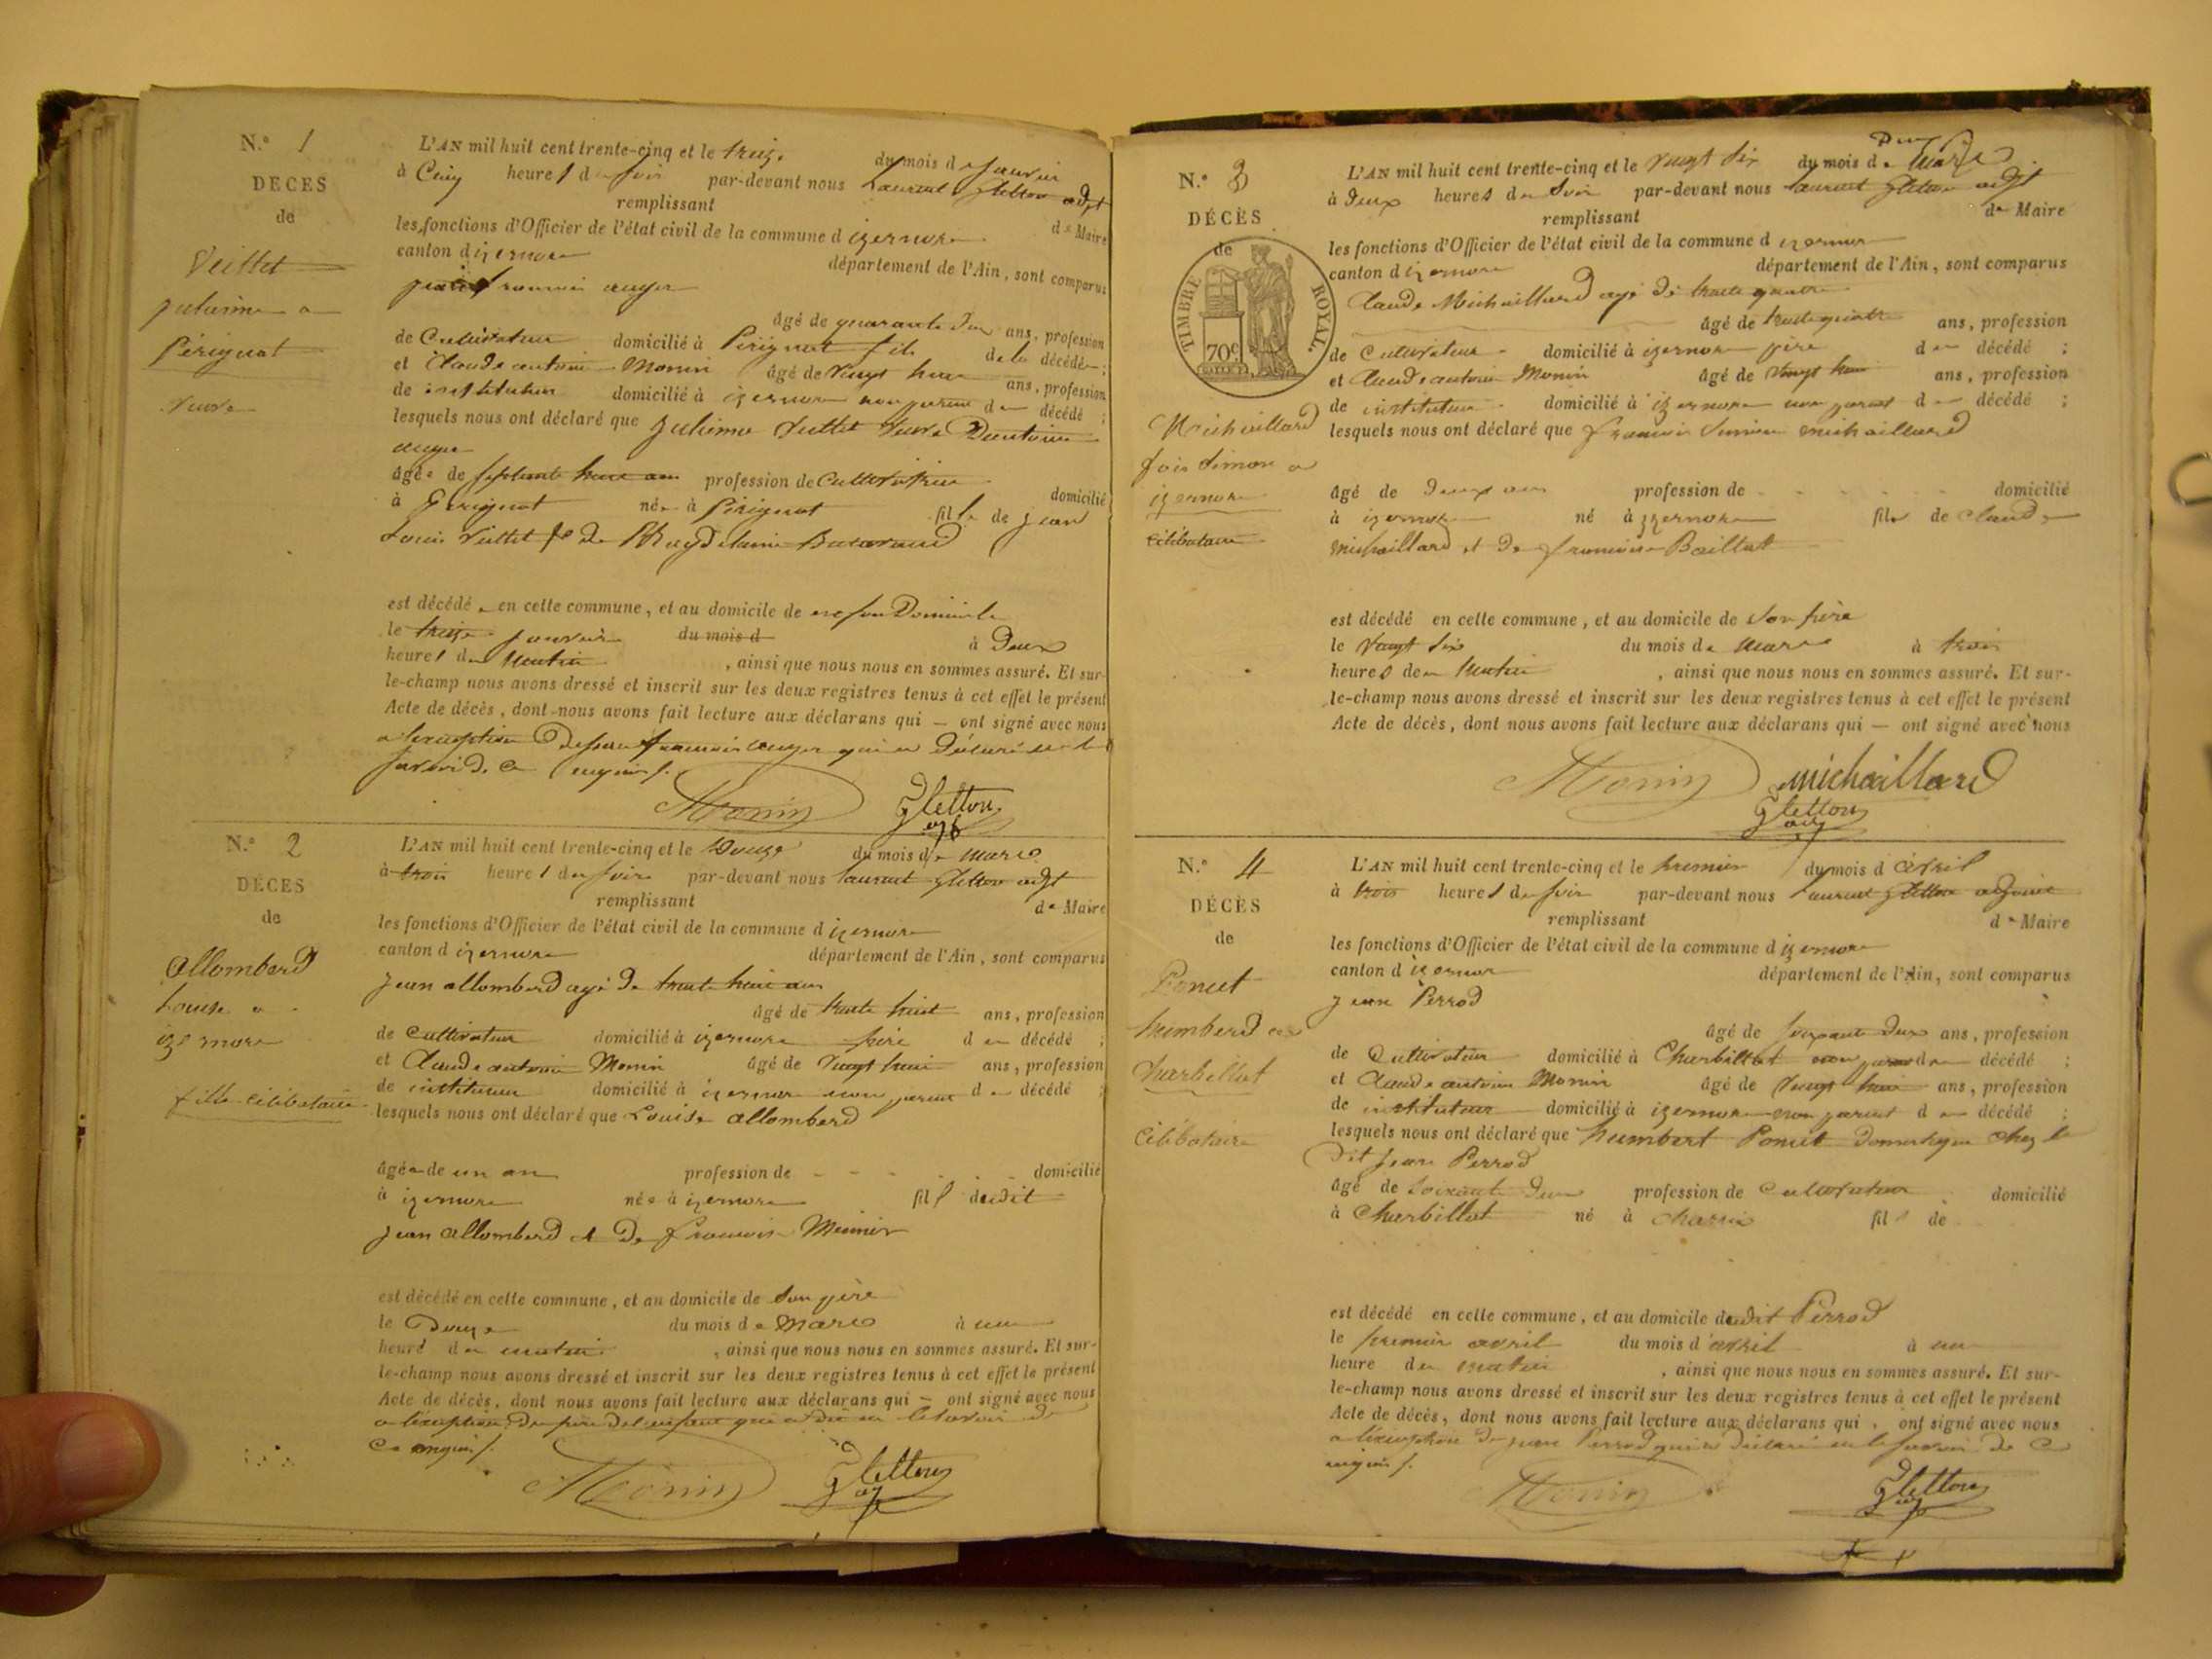 N.° 1
DECES
de
Vuittet
à
Pérignat
veuve
L'AN mil huit cent trente-cinq et le treize du mois de Janvier
à Cinq heures du soir par-devant nous Laurent Gletton adjt
remplissant de Maire
les fonctions d'Officier de l'état civil de la commune d izernore
canton d izernore département de l'Ain, sont comparus
françois auger
âgé de quarante deux ans, profession
de Cultivateur domicilié à Pérignat fils de la décédée ;
et Claude antoine Monin âgé de vingt huit ans, profession
de instituteur domicilié à izernore non parent de décédé ;
lesquels nous ont déclaré que Vuittet veuve D'antoine
auger
âgée de septante huit ans profession de Cultivatrice domicilié
à Perignat née à Pérignat fille de jean
Louis Vuittet & de Magdelaine
est décédée en cette commune, et au domicile de son Domicile
le treize janvier du mois d à Deux
heures du Matin , ainsi que nous nous en sommes assuré. Et sur-
le-champ nous avons dressé et inscrit sur les deux registres tenus à cet effet le présent
Acte de décès, dont nous avons fait lecture aux déclarans qui — ont signé avec nous
a l'exception françois auger qui a Déclaré ne le
savoir de ce enquis /.
Monin Gletton
adjt
N.° 2
DÉCES
de
allomberd
Louise à
izernore
fille célibataire
L'AN mil huit cent trente-cinq et le Douze du mois de mars
à trois heures du soir par-devant nous laurent Gletton adjt
remplissant de Maire
les fonctions d'Officier de l'état civil de la commune d izernore
canton d izernore département de l'Ain, sont comparus
jean allomberd agé de trente huit ans
âgé de trente huit ans, profession
de Cultivateur domicilié à izernore père de décédé ;
et Claude antoine Monin âgé de vingt huit ans, profession
de instituteur domicilié à izernore non parent de décédé ;
lesquels nous ont déclaré que Louise allomberd
âgée de un an profession de - - - - domicilié
à izernore née à izernore fil dudit
jean allomberd et De françoise Meunier
est décédé en cette commune, et au domicile de Son père
le Douze du mois de Mars à une
heure du matin , ainsi que nous nous en sommes assuré. Et sur-
le-champ nous avons dressé et inscrit sur les deux registres tenus à cet effet le présent
Acte de décès, dont nous avons fait lecture aux déclarans qui — ont signé avec nous
a l'exception du père de l'enfant qui a dit ne le savoir de
ce enquis /.
Monin Gletton
adjt
N.° 3
DÉCÈS
de
TIMBRE ROYAL.
70c.
Michaillard
fois Simon à
izernore
célibataire
L'AN mil huit cent trente-cinq et le vingt six du mois de Mars
à Deux heures du Soir par-devant nous laurent Gletton adjt
remplissant de Maire
les fonctions d'Officier de l'état civil de la commune d izernore
canton d izernore département de l'Ain, sont comparus
Claude Michaillard agé de trente quatre
âgé de trente quatre ans, profession
de Cultivateur domicilié à izernore père de décédé ;
et Claude antoine Monin âgé de vingt huit ans, profession
de instituteur domicilié à izernore non parent de décédé ;
lesquels nous ont déclaré que françois Simon michaillard
âgé de Deux ans profession de - - - domicilié
à izernore né à izernore fils de Claude
michaillard et De françoise Baillat
est décédé en cette commune, et au domicile de Son père
le Vingt Six du mois de Mars à trois
heures de Matin , ainsi que nous nous en sommes assuré. Et sur-
le-champ nous avons dressé et inscrit sur les deux registres tenus à cet effet le présent
Acte de décès, dont nous avons fait lecture aux déclarans qui — ont signé avec nous
Monin michaillard
Gletton
adj
N.° 4
DÉCÈS
de
Poncet
humberd à
Charbillat
Célibataire
L'AN mil huit cent trente-cinq et le premier du mois d avril
à trois heures du soir par-devant nous laurent Gletton adjoint
remplissant de Maire
les fonctions d'Officier de l'état civil de la commune d izernore
canton d izernore département de l'Ain, sont comparus
jean Perrod
âgé de soixante Deux ans, profession
de Cultivateur domicilié à Charbillat non parent de décédé ;
et Claude antoine Monin âgé de vingt huit ans, profession
de instituteur domicilié à izernore non parent de décédé ;
lesquels nous ont déclaré que humbert Poncet Domestique chez le
Dit jean Perrod
âgé de Soixante Deux profession de Cultivateur domicilié
à Charbillat né à fil de
est décédé en cette commune, et au domicile dudit Perrod
le premier avril du mois d avril à une
heure du matin , ainsi que nous nous en sommes assuré. Et sur-
le-champ nous avons dressé et inscrit sur les deux registres tenus à cet effet le présent
Acte de décès, dont nous avons fait lecture aux déclarans qui . ont signé avec nous
a l'exception De jean Perrod qui a Déclaré ne le savoir de ce
enquis /.
Monin Gletton
adj